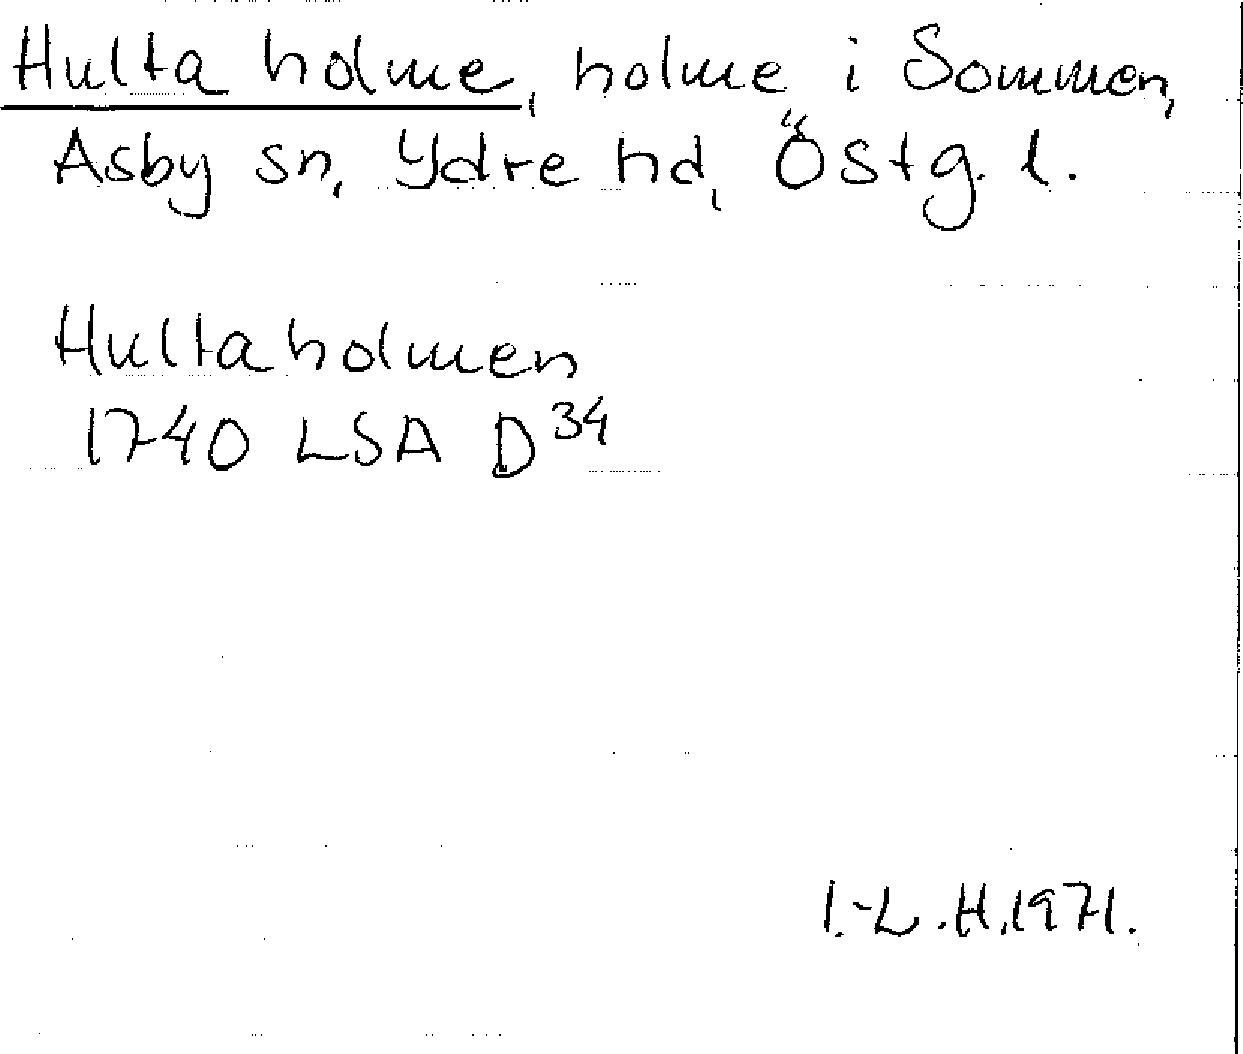 Hulta holme, holme i Sommen,
Asby sn, Ydre hd, Östg. l.
Hultaholmen
1740 LSA D34
I.-L.H.1971.